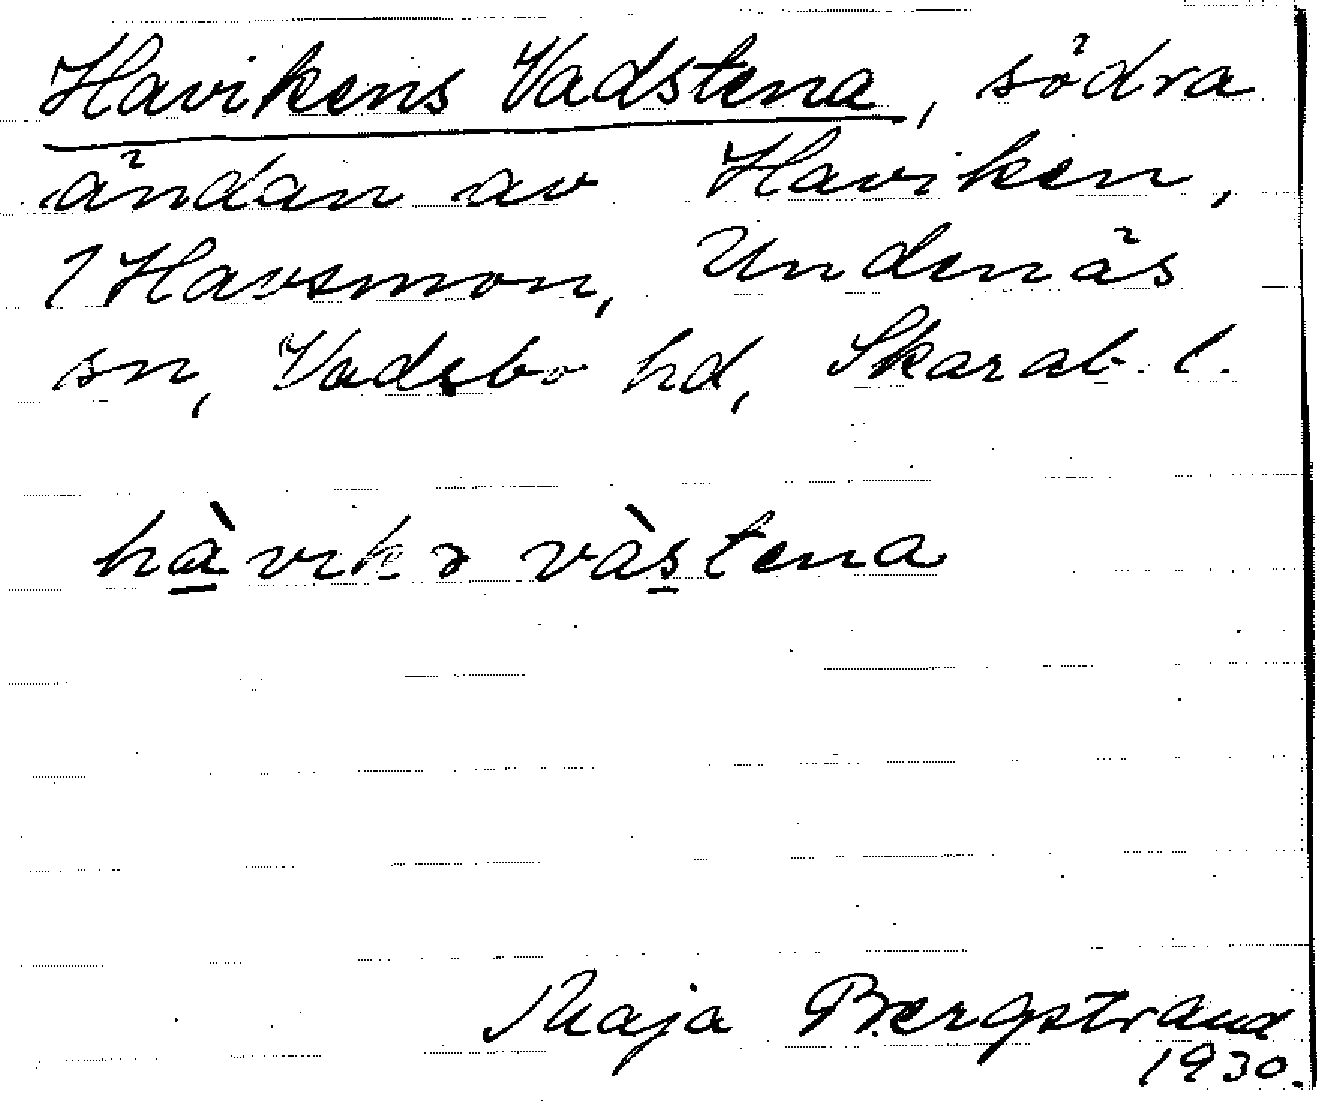 Havikens Vadstena, södra
ändan av Haviken,
1 Havsmon, Undenäs
sn, Vadsbo hd, Skarab. l.
hàvikə vàstena
Maja Bergstrand
1930.